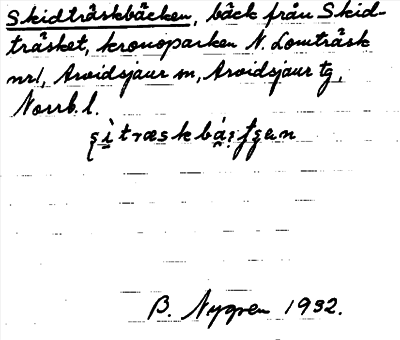 Skidträskbäcken, bäck från Skid-
träsket, kronoparken N. Lomträsk
nr1, Arvidsjaur sn, Arvidsjaur tg,
Norrb. l.
B. Nygren 1932.